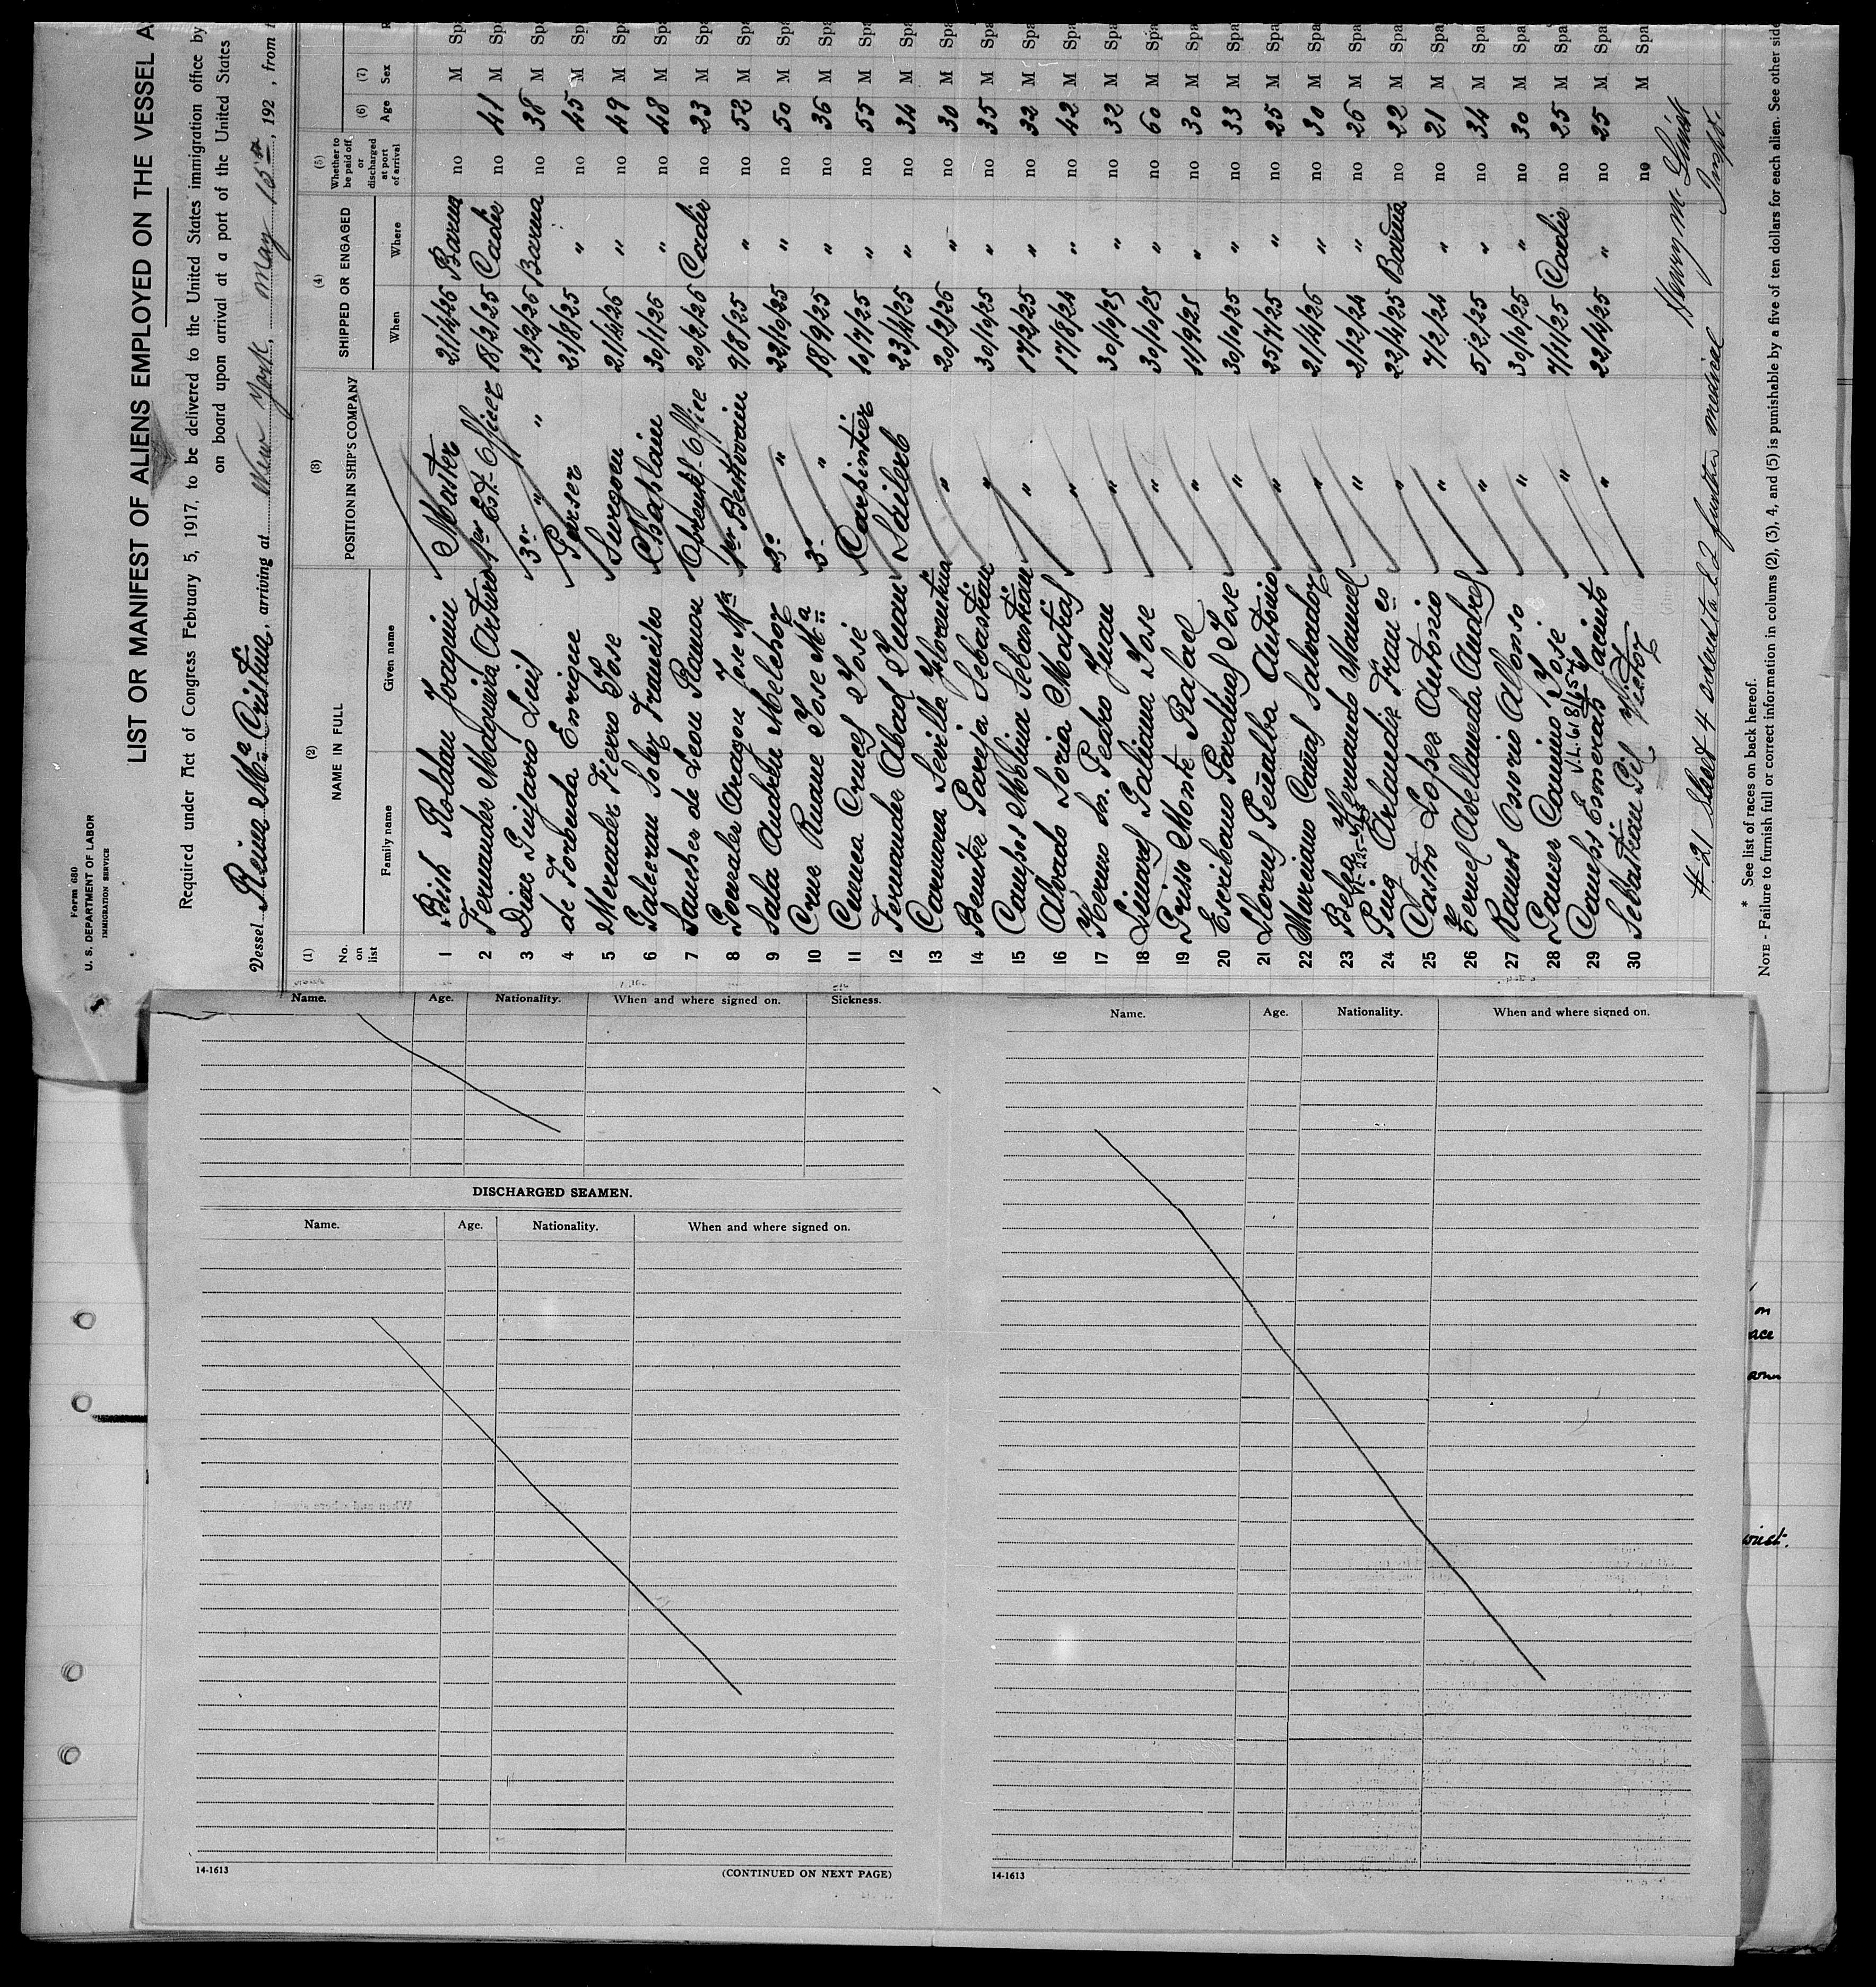 Form 680
U. S. DEPARTMENT OF LABOR
IMMIGRATION SERVICE
LIST OR MANIFEST OF ALIENS EMPLOYED ON THE VESSEL A
Required under Act of Congress February 5, 1917, to be delivered to the United States immigration office by
on board upon arrival at a port of the United States
Vessel Reina Mª Cristina, arriving at New York, May 15th, 192 , from
(1) (2) (3) (4) (5) (6) (7)
No. on list NAME IN FULL Family name Given name POSITION IN SHIP'S COMPANY SHIPPED OR ENGAGED When Where Whether to be paid off or discharged at port of arrival Age Sex R
1 Bish Roldan Joaquin Master 21/4/26 Barna no M Spa
2 Fernandez Maquina Arturo 1er Est- Officer 18/2/25 Cadiz no 41 M Spa
3 Diaz Guijarro Luis 3er " " 13/2/26 Barna no 38 M Spa
4 de Forbuda Enrique Purser 21/8/25 " no 45 M Spa
5 Mercader Fierro Jose Surgeon 21/4/26 " no 49 M Spa
6 Galeran Soler Francisco Chaplain 30/1/26 " no 48 M Spa
7 Sanchez de Leon Ramon Office 20/2/26 Cadiz no 23 M Spa
8 Gonzalez Aragon Jose Mª 1er 9/8/25 " no 52 M Spa
9 Sala Andreu Melchor 2º " 22/10/25 " no 50 M Spa
10 Cruz Ruane Jose Mª 3º " 18/9/25 " no 36 M Spa
11 Cuenca Cruces Jose Carpintier 10/7/25 " no 55 M Spa
12 Fernandez Abad Juan Sailers 23/4/25 " no 34 M Spa
13 Carmona Sevilla Florentino " 20/2/26 " no 30 M Spa
14 Benitez Pareja Sebastian " 30/10/25 " no 35 M Spa
15 Campos Molina Sebastian " 17/2/25 " no 32 M Spa
16 Alvarado Soria Matias " 17/8/24 " no 42 M Spa
17 Pedro Juan " 30/10/25 " no 32 M Spa
18 Linares Galiana Jose " 30/10/25 " no 60 M Spa
19 Griso Monte Rafael " 11/9/25 " no 30 M Spa
20 Escribano Garduas Jose " 30/10/25 " no 33 M Spa
21 Llorens Peñalba Antonio " 25/7/25 " no 25 M Spa
22 Marciano Cañas Salvador " 21/4/26 " no 30 M Spa
23 Belea Hernando Manuel " 2/12/24 " no 26 M Spa
24 Puig Arlandis Franco " 22/4/25 Barna no 22 M Spa
25 Castro Lopez Antonio " 7/2/24 " no 21 M Spa
26 Teruel Abellaneda Andres " 5/2/25 " no 34 M Spa
27 Ramos Osorio Alfonso " 30/10/25 " no 30 M Spa
28 Gancer Camino Jose " 7/11/25 Cadiz no 25 M Spa
V.L. 618/657
29 Canefs Esmerats Jacinto " 22/4/25 " no 25 M Spa
30 Sebastian Gil Victor no M Spa
# 21 Sheet 4 further medical
Henry M.
Inspt.
* See list of races on back hereof.
NOTE - Failure to furnish full or correct information in colums (2), (3), 4, and (5) is punishable by a five of ten dollars for each alien. See other side
Name. Age. Nationality. When and where signed on. Sickness.
DISCHARGED SEAMEN.
Name. Age. Nationality. When and where signed on.
14-1613 (CONTINUED ON NEXT PAGE)
Name. Age. Nationality. When and where signed on.
14-1613
on
ace